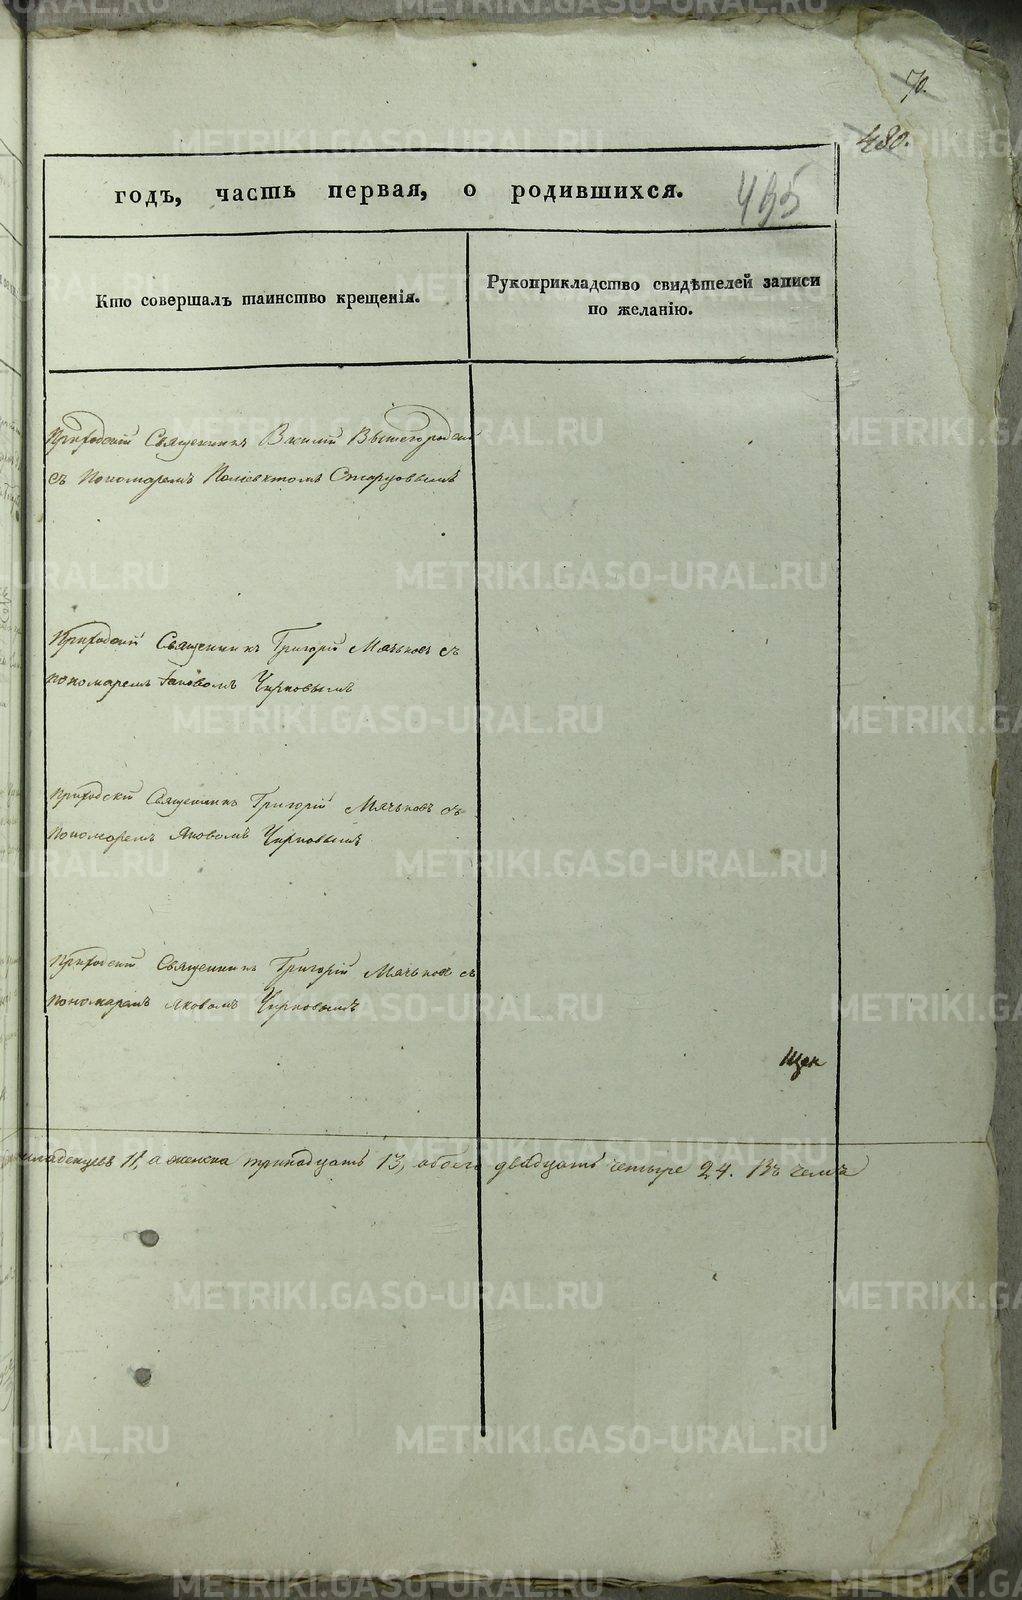 70.
480.
годъ, часть первая, о родившихся.
495
Кто совершалъ таинство крещенія.
Рукоприкладство свидѣтелей записи
по желанію.
Приходскій Священникъ Василій Вышегородскій
съ Пономаремъ Поліевктомъ Старцовымъ
Приходскій Священникъ Григорій Мячковъ съ
пономаремъ Іаковомъ Чирковымъ
Приходскій Священникъ Григорій Мячьковъ съ
Пономаремъ Яковомъ Чирковымъ
Приходскій Священникъ Григорій Мячьковъ съ
пономаремъ Яковомъ Чирковымъ
младенцевъ 11, а женска тринадцать 13, обоего двадцать четыре 24. Въ чемъ
METRIKI.GASO-URAL.RU